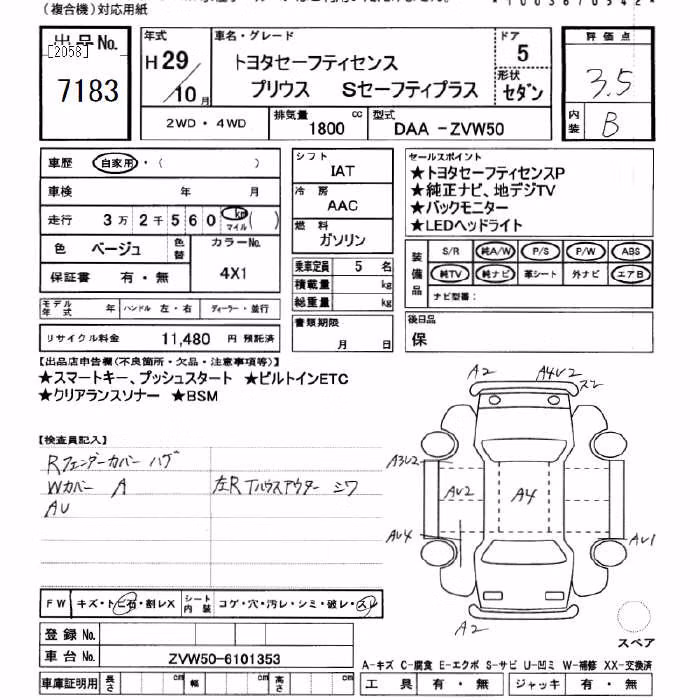 (複合機)対応用紙
出品No.
[2058]
7183
年式
H 29 / 10 月
車名・グレード
トヨタセーフティセンス
プリウス Sセーフティプラス
ドア
5
形状
セダン
評価点
3.5
内装
B
2WD・4WD
排気量
1800 cc
型式
DAA -ZVW50
車歴 自家用・( )
車検 年 月
走行 3万2千560 km マイル ( )
色 ベージュ
色替
カラーNo.
4X1
保証書 有・無
モデル年式 年 ハンドル 左・右 ディーラー・並行
リサイクル料金 11,480 円 預託済
シフト
IAT
冷房
AAC
燃料
ガソリン
乗車定員 5 名
積載量 kg
総重量 kg
書類期限
月 日
セールスポイント
★トヨタセーフティセンスP
★純正ナビ、地デジTV
★バックモニター
★LEDヘッドライト
装備品
S/R 純A/W P/S P/W ABS
純TV 純ナビ 革シート 外ナビ エアB
ナビ型番:
後日品
保
【出品店申告欄(不良箇所・欠品・注意事項等)】
★スマートキー、プッシュスタート ★ビルトインETC
★クリアランスソナー ★BSM
【検査員記入】
Rフェンダーカバー ハゲ
Wカバー A
AU
左R Tハウスアウター シワ
A2
A4U2
スレ
A3U2
AU2
A4
AU4
AU1
A2
スペア
FW キズ・トビ石・割レX
シート内装 コゲ・穴・汚レ・シミ・破レ・スレ
登録No.
車台No. ZVW50-6101353
車庫証明用 長さ cm 幅 cm 高さ cm
A-キズ C-腐食 E-エクボ S-サビ U-凹ミ W-補修 XX-交換済
工具 有・無 ジャッキ 有・無